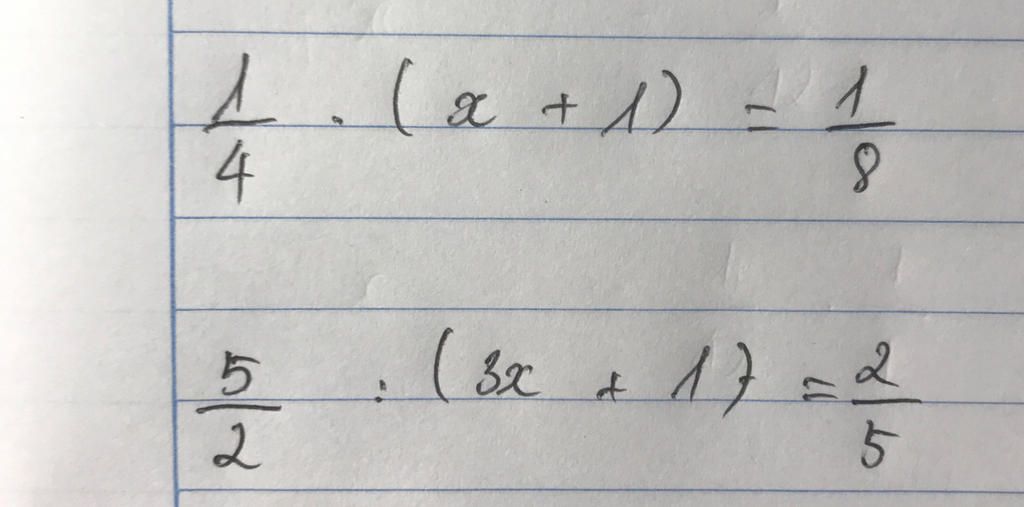 1/4 . (x + 1) = 1/8
5/2 : (3x + 1) = 2/5